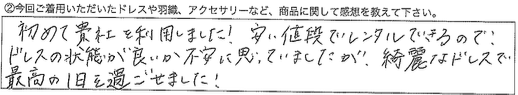 ②今回ご着用いただいたドレスや羽織、アクセサリーなど、商品に関して感想を教えて下さい。
初めて貴社を利用しました！安い値段でレンタルできるので！
ドレスの状態が良いか不安に思っていましたが、綺麗なドレスで
最高の1日を過ごせました！